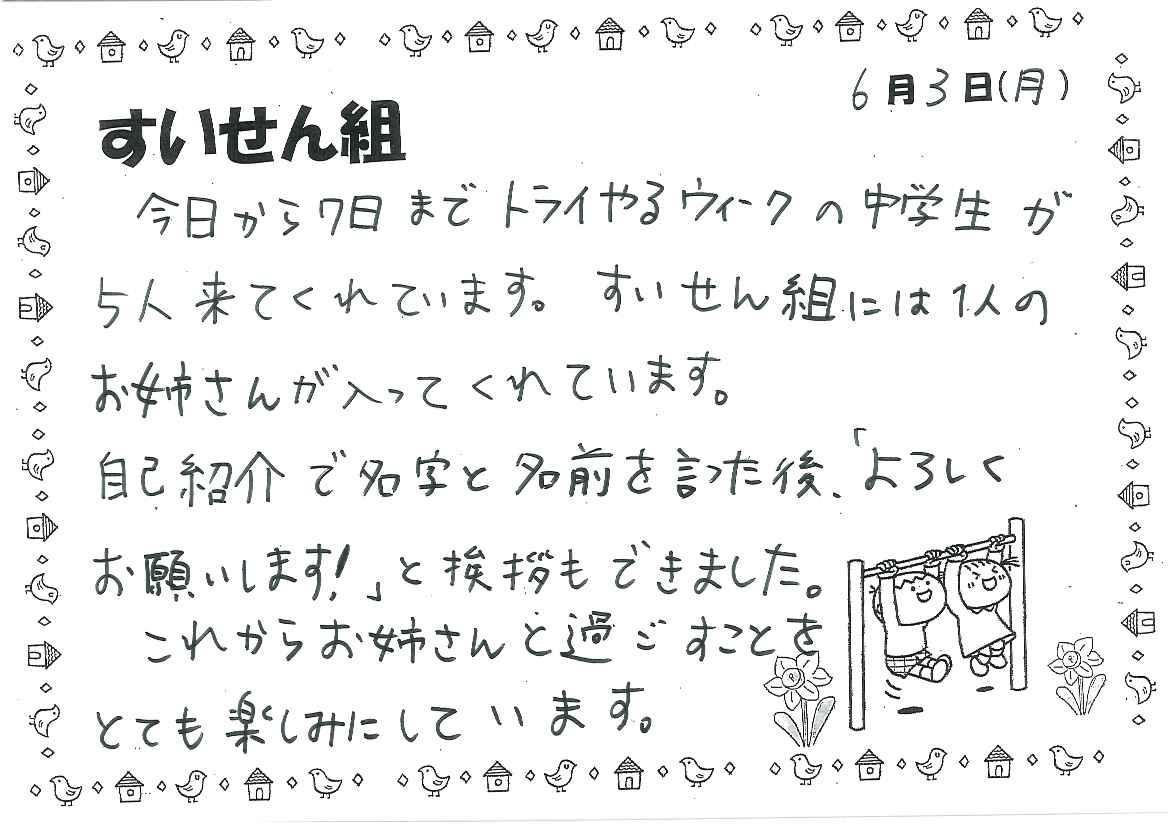 6月3日(月)
すいせん組
今日から7日までトライやるウィークの中学生が
5人来てくれています。すいせん組には1人の
お姉さんが入ってくれています。
自己紹介で名字と名前を言った後、「よろしく
お願いします!」と挨拶もできました。
これからお姉さんと過ごすことを
とても楽しみにしています。